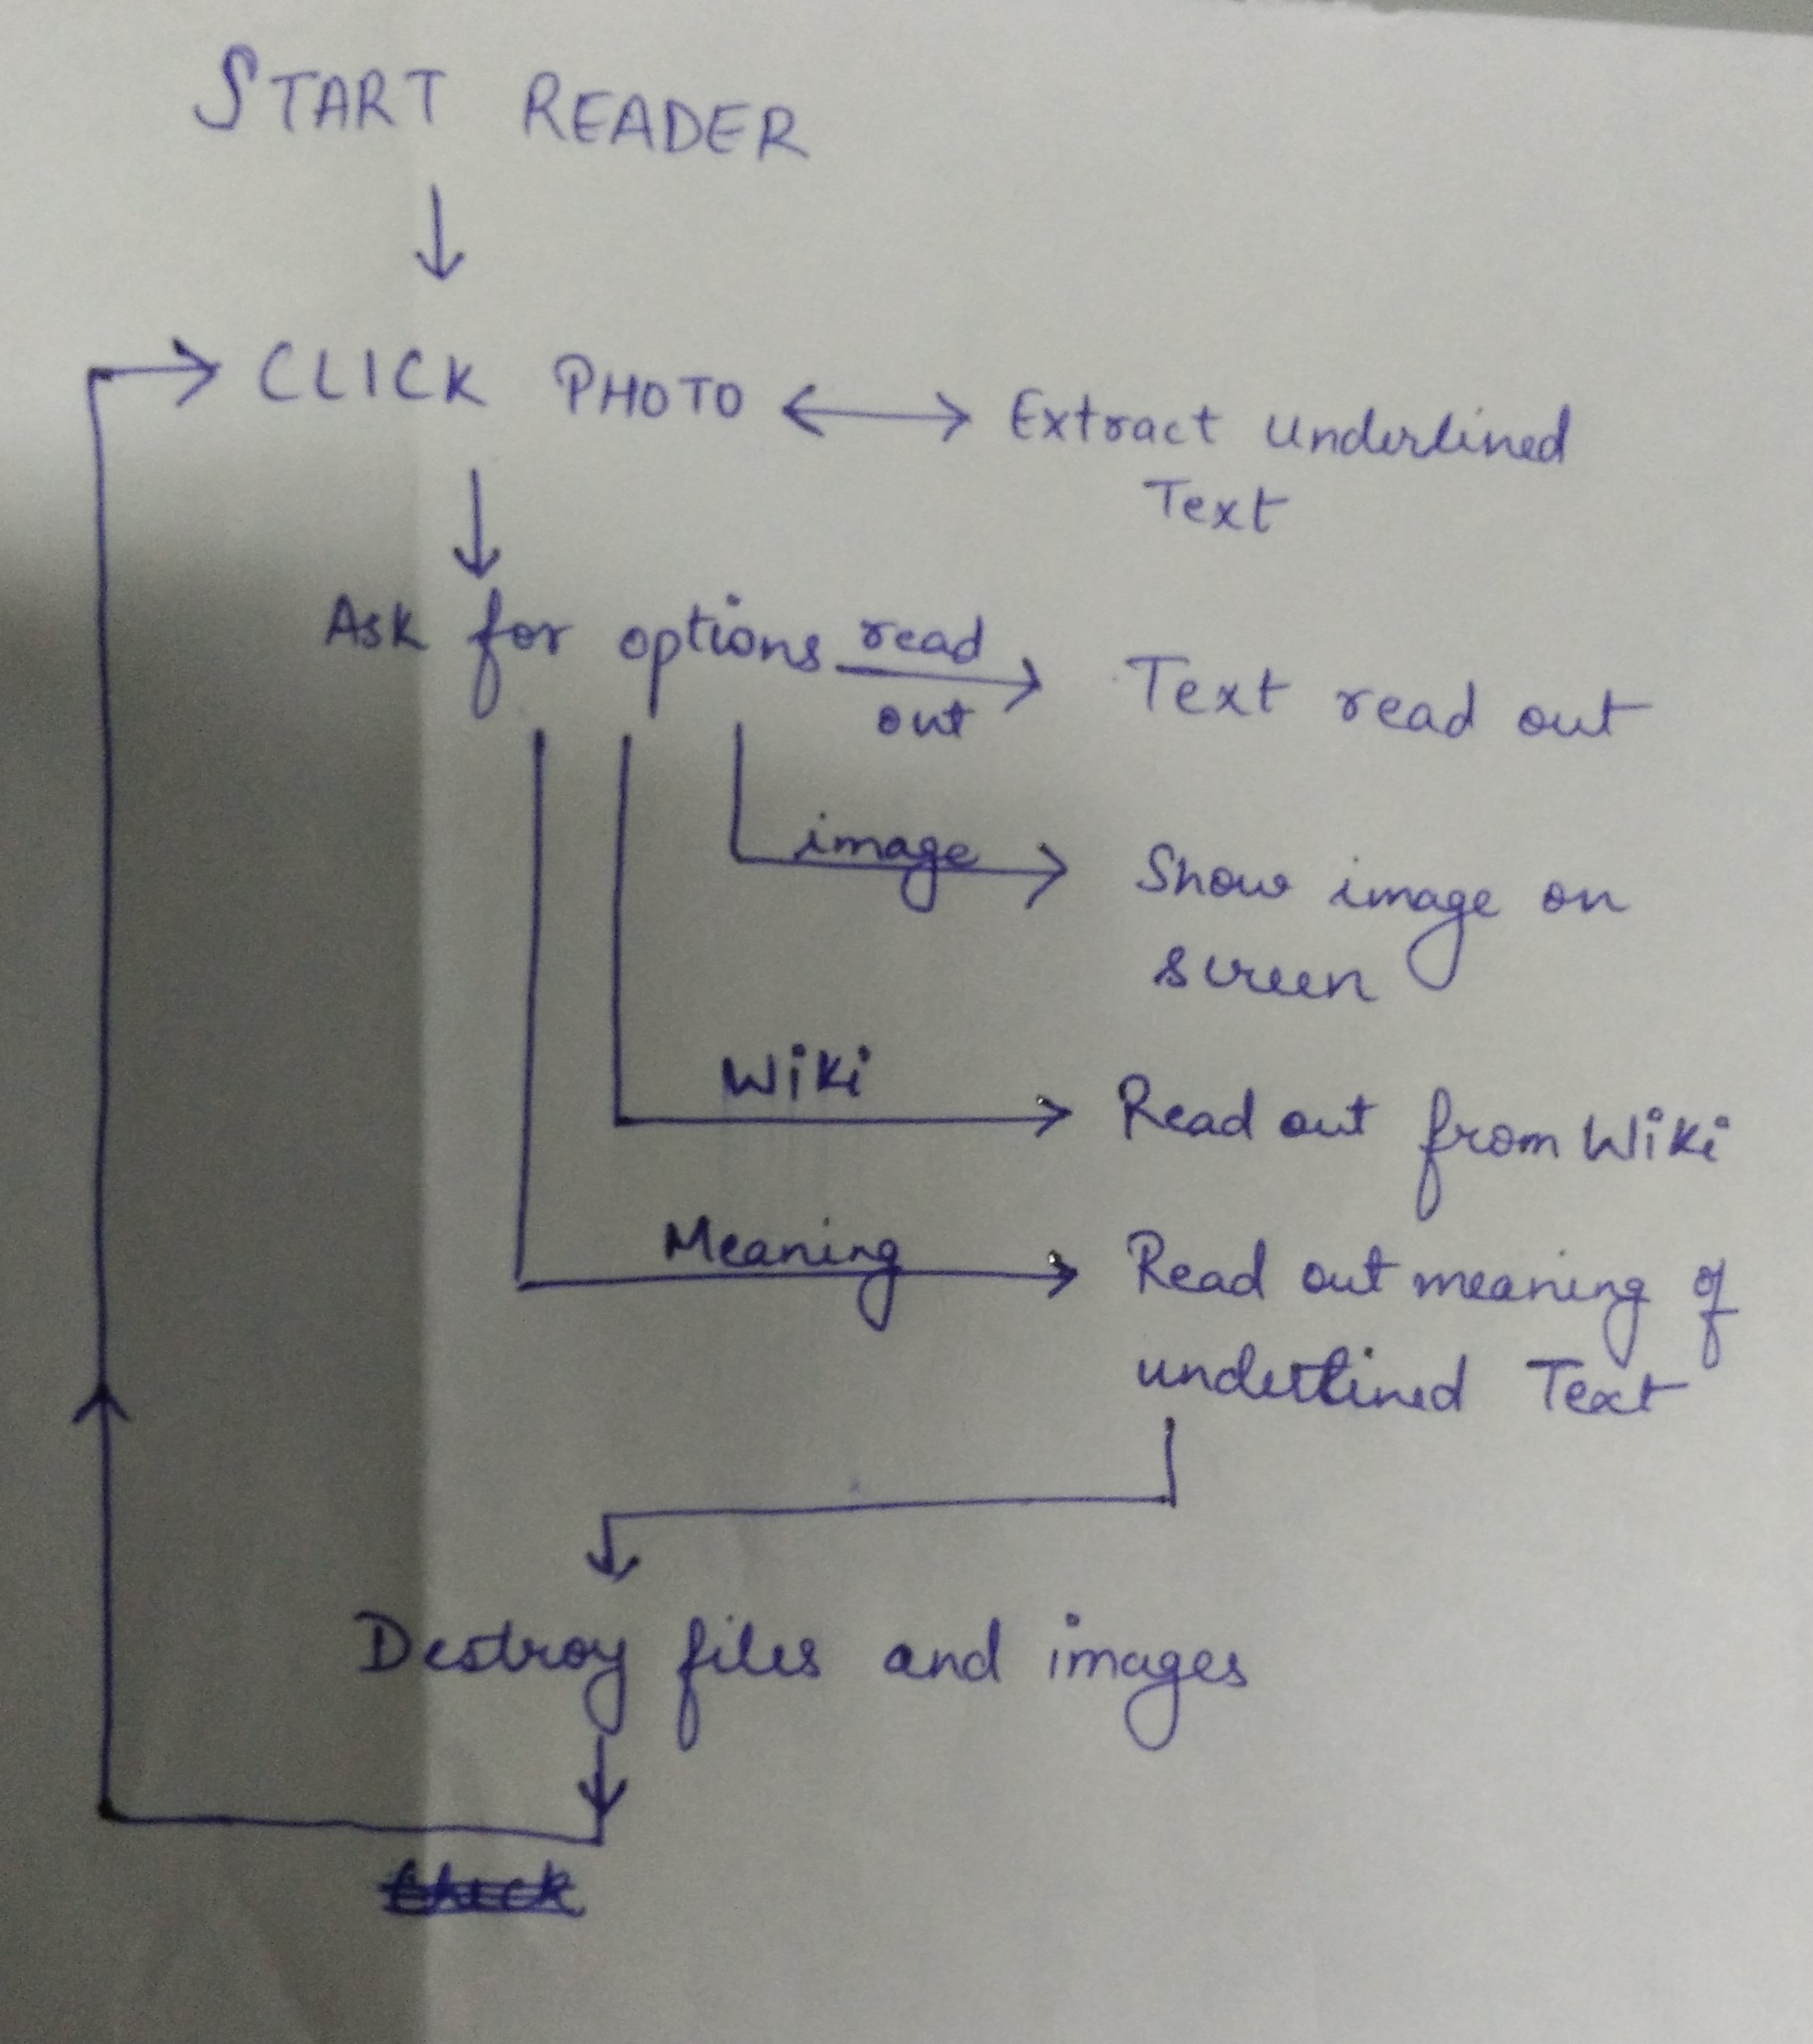 START READER
CLICK PHOTO
Extract underlined
Text
Ask for options
read
out
Text read out
image
Show image on
screen
Wiki
Read out from Wiki
Meaning
Read out meaning of
underlined Text
Destroy files and images